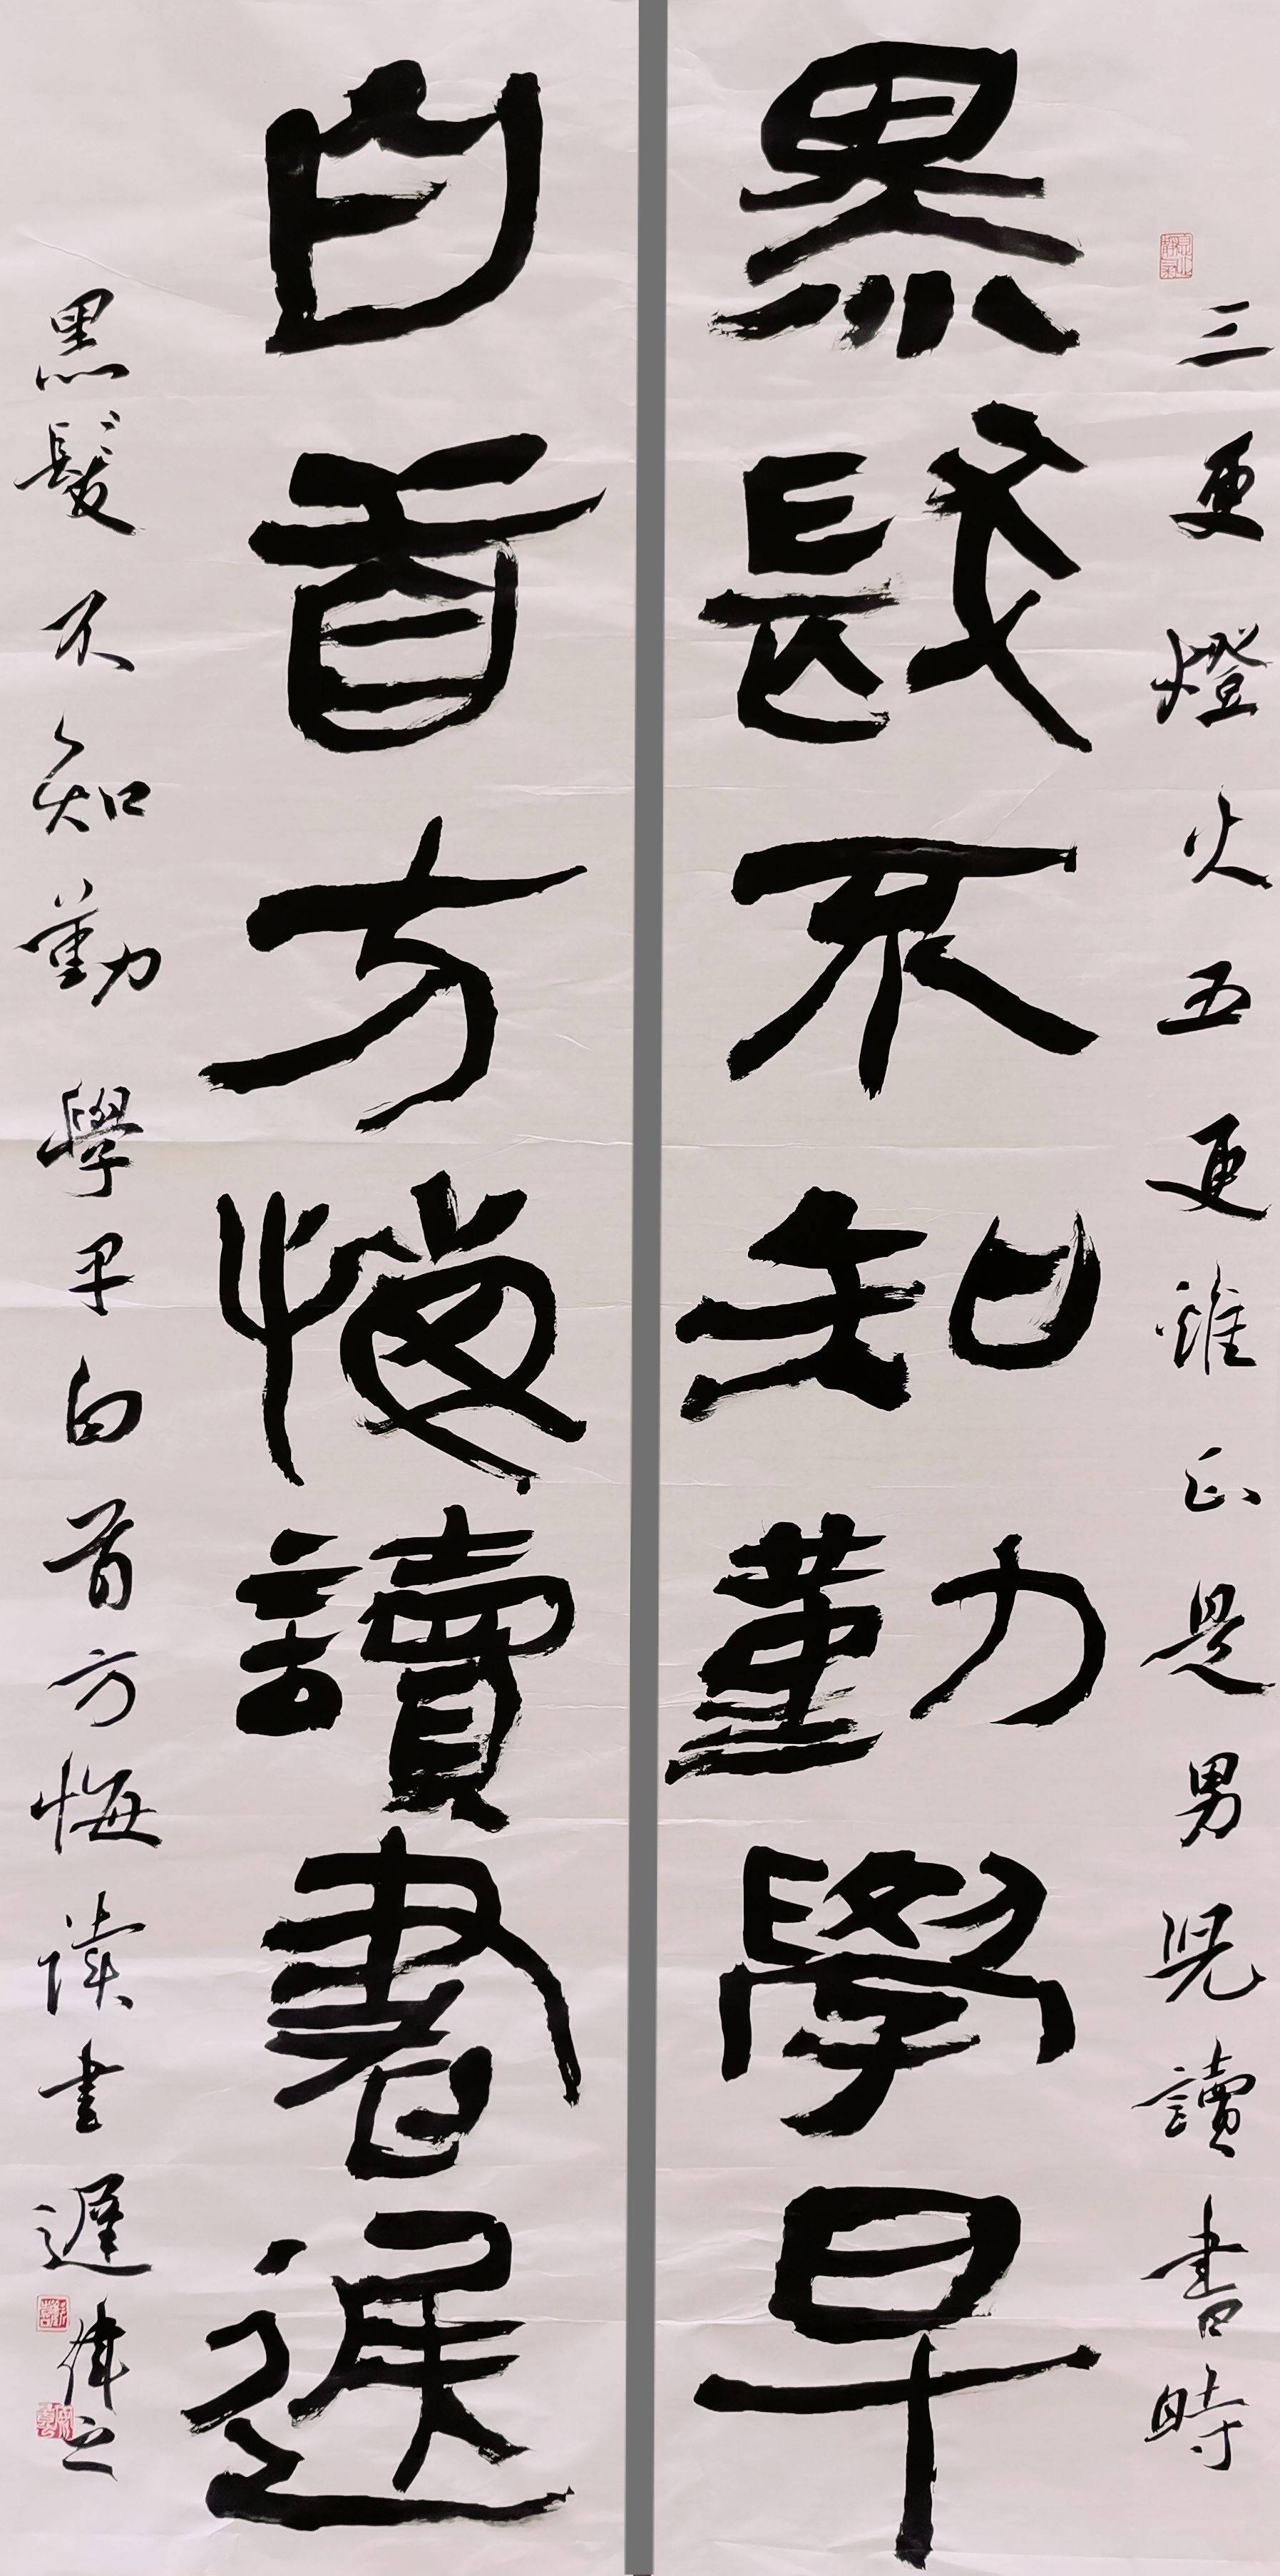 三更燈火五更雞正是男兒讀書時
黑髮不知勤學早
白首方悔讀書遲
黑髮不知勤學早白首方悔读书遲 偉之